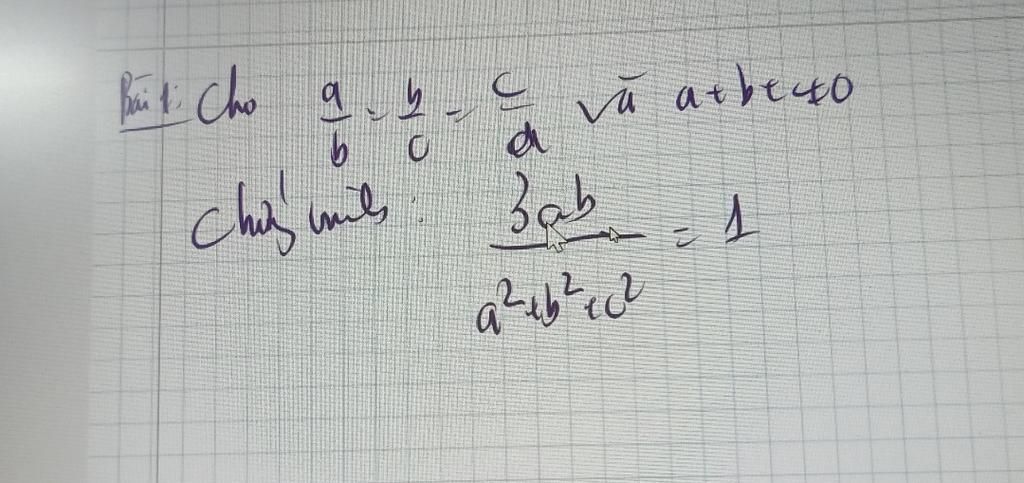 Bài 1: Cho a/b = b/c = c/a và a+b+c≠0
Chứng minh: 3ab/(a²+b²+c²) = 1